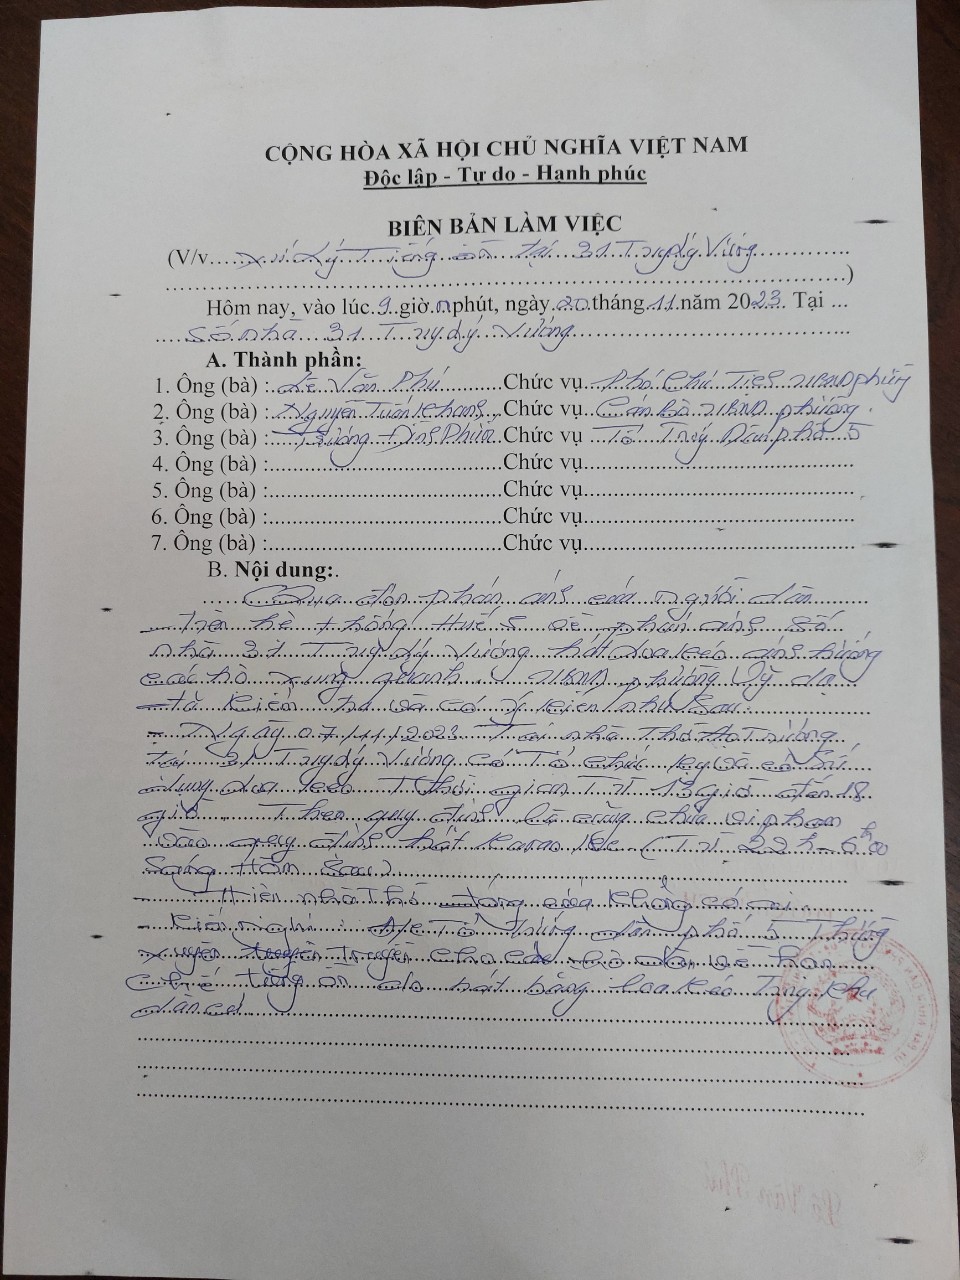 CỘNG HÒA XÃ HỘI CHỦ NGHĨA VIỆT NAM
Độc lập - Tự do - Hạnh phúc
BIÊN BẢN LÀM VIỆC
(V/v....xử lý Tiếng ồn tại 31 Truy dý Vương
....................)
Hôm nay, vào lúc.9..giờ.n.phút, ngày.20.tháng.11.năm 2023. Tại ...
Số nhà 31 Truy dý Vương
A. Thành phần:
1. Ông (bà) :Lê Văn Phú..........Chức vụ...Phó Chủ Tịch UBND phường
2. Ông (bà) :Nguyễn Tuấn Khang...Chức vụ...Cán Bộ UBND phường.
3. Ông (bà) :Trương Đình Phước...Chức vụ Tổ Trưởng Dân phố 5
4. Ông (bà) :..........Chức vụ..........
5. Ông (bà) :..........Chức vụ..........
6. Ông (bà) :..........Chức vụ..........
7. Ông (bà) :..........Chức vụ..........
B. Nội dung:.
Qua đơn phản ánh của người dân
trên hệ thống Huế S về phản ánh số
nhà 31 Truy dý Vương hát loa kéo ảnh hưởng
các hộ xung quanh. UBND phường Vỹ dạ
đã kiểm tra và có ý kiến như sau:
- Ngày 07/11/2023 Tại nhà Thờ Họ Trương
tại 31 Truy dý Vương có Tổ chức kỵ và có sử
dụng loa kéo Thời gian Từ 13 giờ đến 18
giờ. Theo quy định là cũng chưa vi phạm
vào quy định hát karaoke (Từ 22h - 6h00
sáng Hôm sau)
- Hiện nhà Thờ đóng cửa không có ai
- Kiến nghị: Tổ trưởng dân phố 5 Thường
xuyên tuyên truyền cho các hộ dân về hạn
chế tiếng ồn do hát bằng loa kéo trong khu
dân cư
Lê Văn Phú